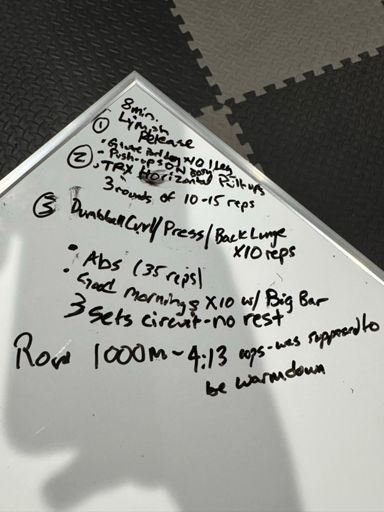 8 min.
① Lymph
Release
• Glute bridge w/ 1 leg
② • Push-ups on
• TRX Horizontal Pull-ups
3 rounds of 10-15 reps
③ Dumbbell Curl/Press/Back Lunge
x10 reps
• Abs (35 reps)
• Good mornings x10 w/ Big Bar
3 sets circuit - no rest
Row 1000m - 4:13 oops - was supposed to
be warmdown